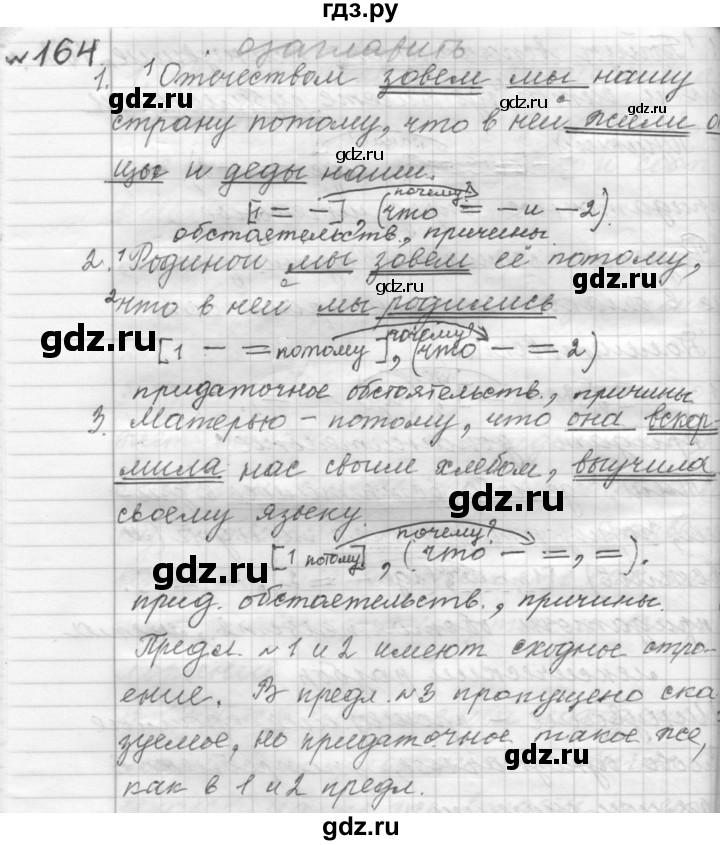 гдз.ру
№164. озаглавить
1. ¹Отечеством зовем мы нашу
страну потому, что в ней ² жили о
цы и деды наши.
[1 = –], (почему? что = – и – 2).
обстоятельств., причины
2. ¹Родиной мы зовем её потому,
²что в ней мы родились
[1 – = потому], (почему? что – = 2)
придаточное обстоятельств., причины
3. Матерью – потому, что она вскор-
мила нас своим хлебом, выучила
своему языку.
[1 потому], (почему? что – =, =).
прид. обстоятельств., причины.
Предл. №1 и 2 имеют сходные стро-
ение. В предл. №3 пропущено ска
зуемое, но придаточное такое же,
как в 1 и 2 предл.
gdz.ru
gdz.ru
gdz.ru
gdz.ru
gdz.ru
gdz.ru
gdz.ru
gdz.ru
gdz.ru
gdz.ru
gdz.ru
gdz.ru
gdz.ru